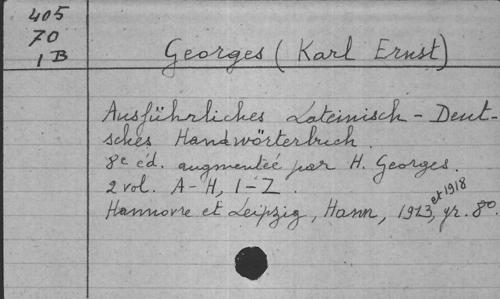 405
70
1 B
Georges (Karl Ernst)
Ausführliches Lateinisch - Deut-
sches Handwörterbuch.
8e éd. augmenteé par H. Georges.
2 vol. A-H, I-Z.
Hannovre et Leipzig, Hann, 1913, et 1918 gr. 8o.